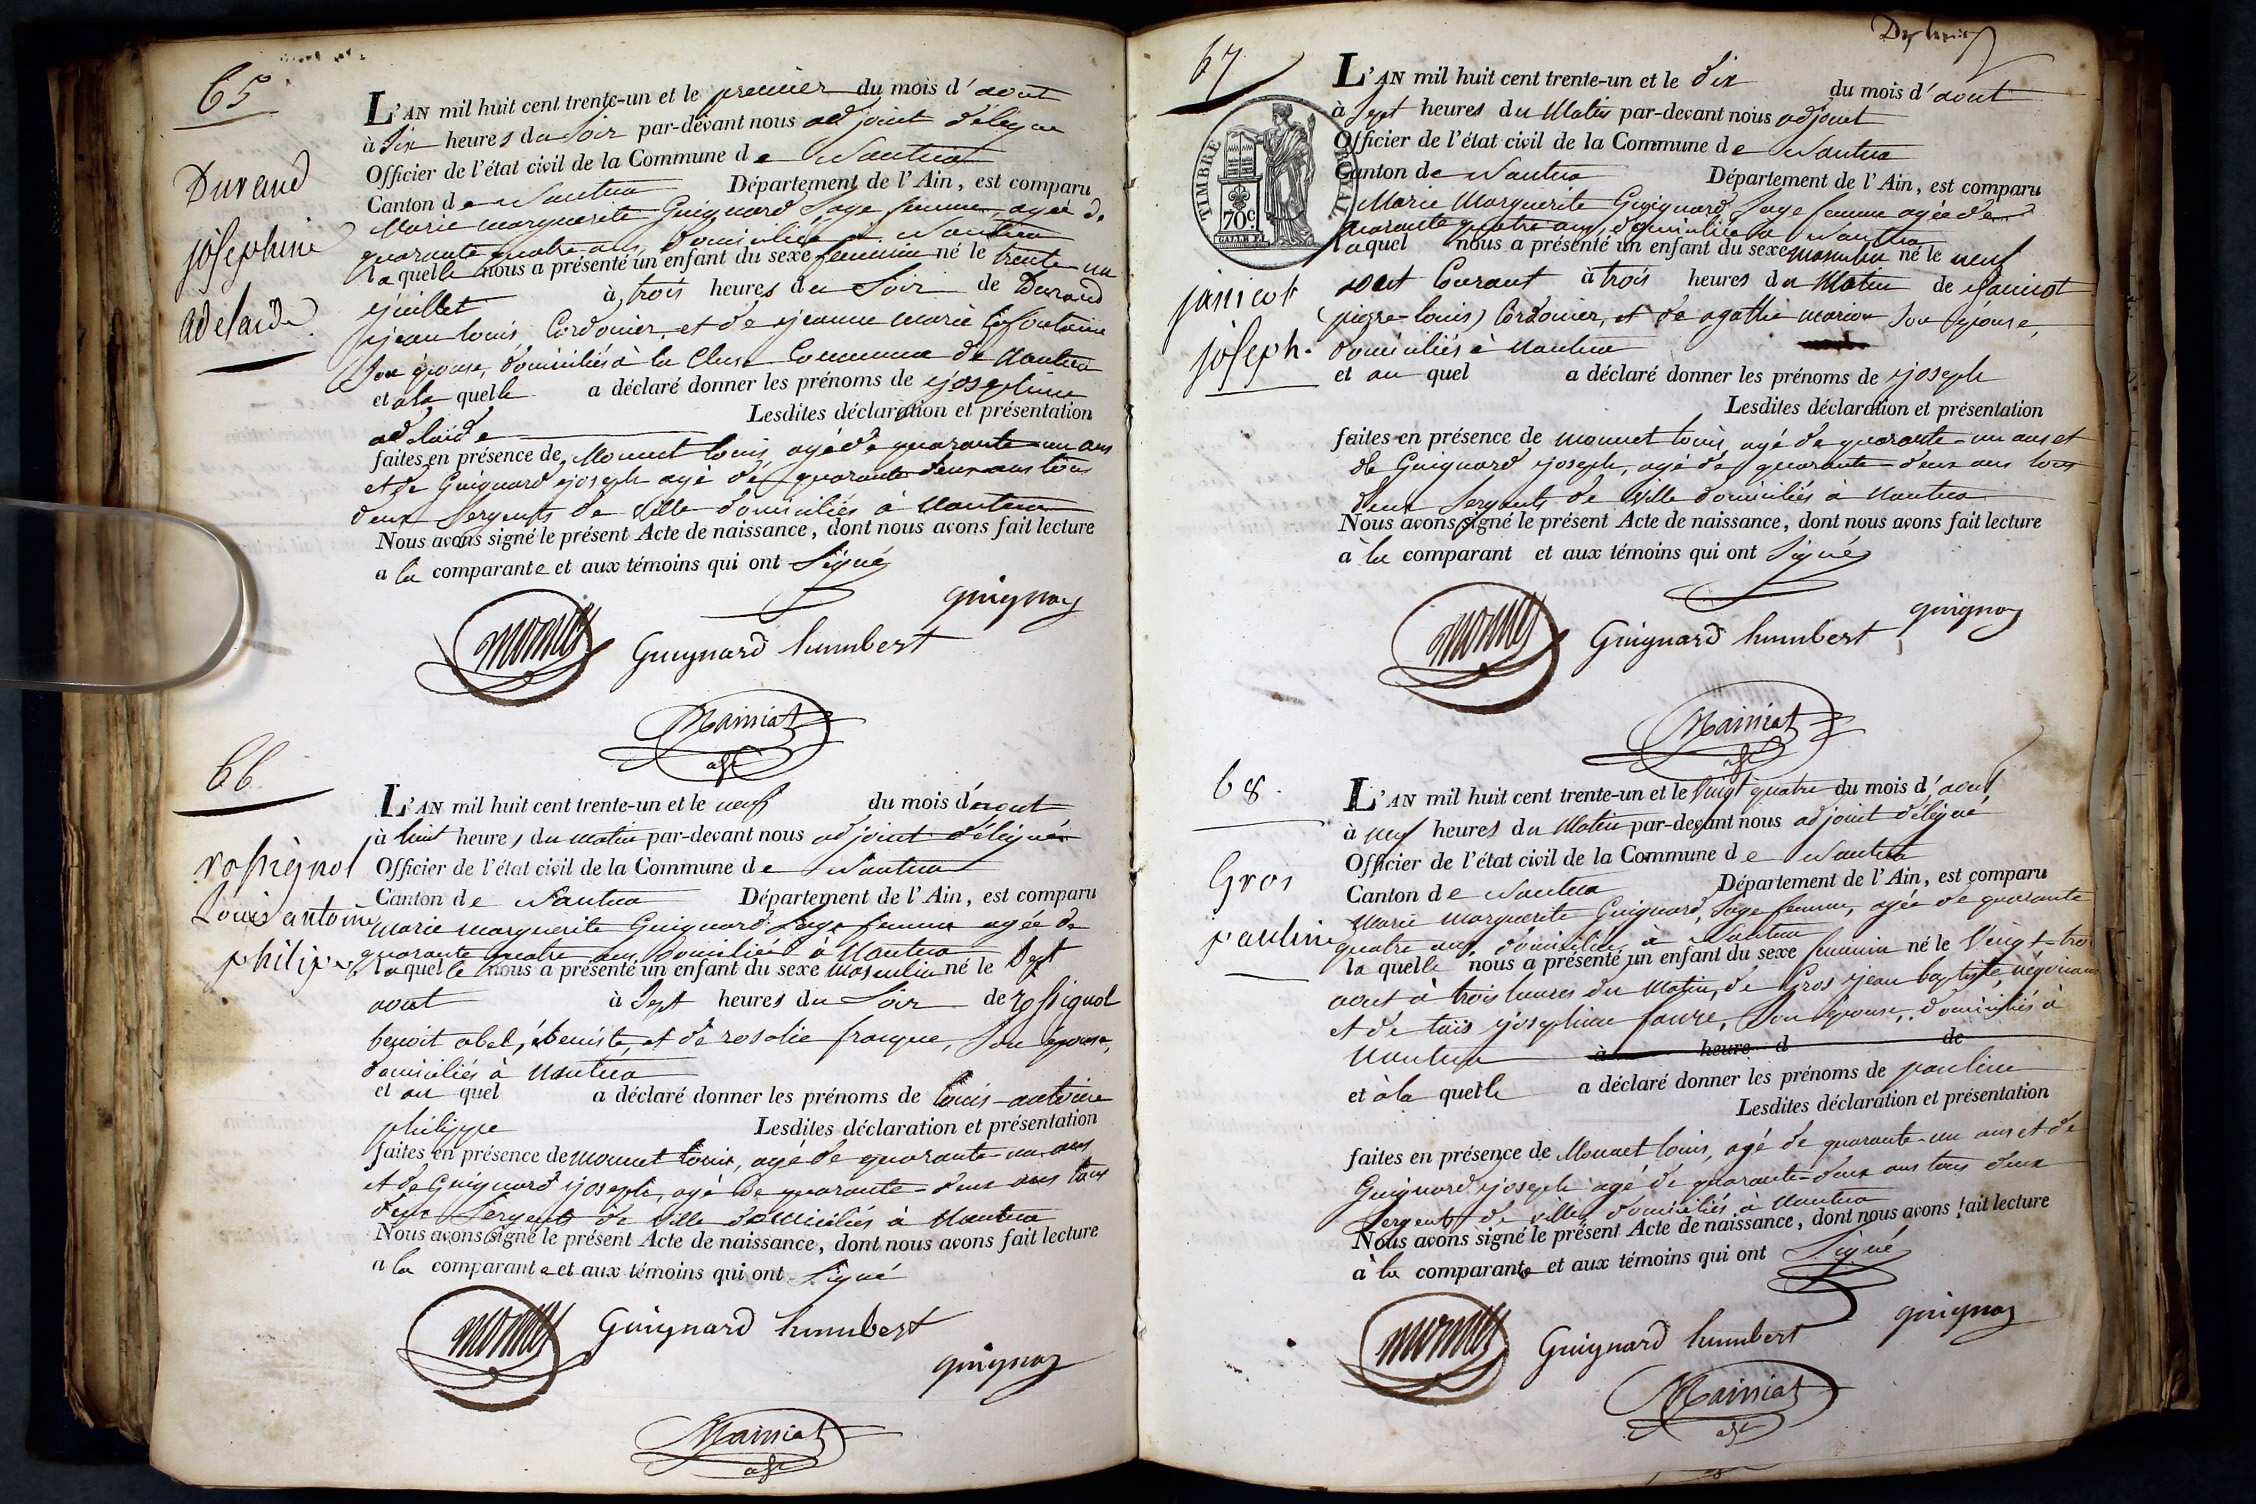 65
Durand
joséphine
adelaide
L'AN mil huit cent trente-un et le premier du mois d'aout
à six heures du soir par-devant nous adjoint délégué
Officier de l'état civil de la Commune de Nantua
Canton de Nantua Département de l'Ain, est comparu
Marie marguerite Guignard Sage femme agée de
quarante quatre ans, domiciliée à Nantua
laquelle nous a présenté un enfant du sexe feminin né le trente un
juillet à trois heures du Soir de Durand
jean louis Cordonier, et de jeanne marie
Son épouse, domiciliés à la Cluse Commune de Nantua
et à la quelle a déclaré donner les prénoms de josephine
adelaide Lesdites déclaration et présentation
faites en présence de Monnet louis, agé de quarante-un ans
et de Guignard joseph agé de quarante deux ans tous
deux Sergents de Ville domiciliés à Nantua
Nous avons signé le présent Acte de naissance, dont nous avons fait lecture
a la comparante et aux témoins qui ont Signé
monnet Guignard humbert guignard
Mainiat
adj
66
rossignol
Louis antoine
philippe
L'AN mil huit cent trente-un et le neuf du mois d'aout
à huit heures du matin par-devant nous adjoint délégué
Officier de l'état civil de la Commune de Nantua
Canton de Nantua Département de l'Ain, est comparu
Marie marguerite Guignard Sage femme agée de
quarante quatre ans, domiciliée à Nantua
laquelle nous a présenté un enfant du sexe masculin né le Sept
aout à Sept heures du Soir de rossignol
benoit abel, ébeniste, et de rosalie franque, Son épouse,
domiciliés à Nantua
et au quel a déclaré donner les prénoms de louis-antoine
philippe Lesdites déclaration et présentation
faites en présence de monnet louis, agé de quarante-un ans
et de Guignard joseph, agé de quarante-deux ans tous
deux Sergents de Ville domiciliés à Nantua
Nous avons signé le présent Acte de naissance, dont nous avons fait lecture
a la comparante et aux témoins qui ont Signé
monnet Guignard humbert
guignard
Mainiat
adj
67
TIMBRE ROYAL
70c.
janicot
joseph.
L'AN mil huit cent trente-un et le dix du mois d'aout
à Sept heures du Matin par-devant nous adjoint
Officier de l'état civil de la Commune de Nantua
Canton de Nantua Département de l'Ain, est comparu
Marie Marguerite Guignard Sage femme agée de
quarante quatre ans, domiciliée à Nantua
laquel nous a présenté un enfant du sexe masculin né le neuf
aout Courant à trois heures du Matin de janicot
(pierre-louis) Cordonier, et de agathe marion Son épouse,
domiciliés à Nantua
et au quel a déclaré donner les prénoms de joseph
Lesdites déclaration et présentation
faites en présence de monnet louis, agé de quarante-un ans et
de Guignard joseph, agé de quarante-deux ans tous
deux Sergents de Ville domiciliés à Nantua
Nous avons signé le présent Acte de naissance, dont nous avons fait lecture
à la comparant et aux témoins qui ont Signé
monnet Guignard humbert guignard
Mainiat
adj
68.
Gros
pauline
L'AN mil huit cent trente-un et le Vingt quatre du mois d'aout
à neuf heures du Matin par-devant nous adjoint délégué
Officier de l'état civil de la Commune de Nantua
Canton de Nantua Département de l'Ain, est comparu
Marie Marguerite Guignard, Sage femme, agée de quarante
quatre ans, domiciliée à Nantua
la quelle nous a présenté un enfant du sexe feminin né le Vingt-trois
aout à trois heures du Matin, de Gros jean baptiste, négociant
et de joséphine favre, Son épouse, domiciliés à
Nantua à heure d de
et à la quelle a déclaré donner les prénoms de pauline
Lesdites déclaration et présentation
faites en présence de Monnet louis, agé de quarante-un ans et de
Guignard joseph agé de quarante-deux ans tous deux
Sergents de ville, domiciliés à Nantua
Nous avons signé le présent Acte de naissance, dont nous avons fait lecture
à la comparante et aux témoins qui ont Signé
monnet Guignard humbert guignard
Mainiat
adj